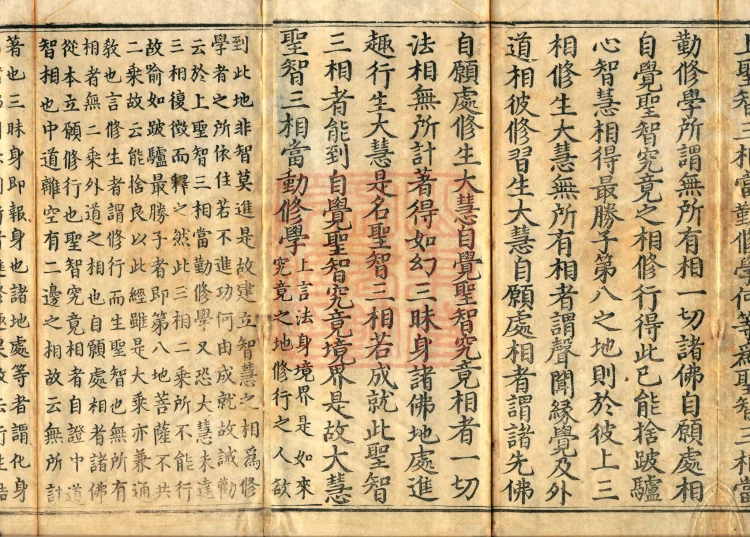 上聖智三相當勤修學何等爲聖智三相當
勤修學所謂無所有相一切諸佛自願處相
自覺聖智究竟之相修行得此已能捨跛驢
心智慧相得最勝子第八之地則於彼上三
相修生大慧無所有相者謂聲聞緣覺及外
道相彼修習生大慧自願處相者謂諸先佛
自願處修生大慧自覺聖智究竟相者一切
法相無所計著得如幻三昧身諸佛地處進
趣行生大慧是名聖智三相若成就此聖智
三相者能到自覺聖智究竟境界是故大慧
聖智三相當勤修學
上言法身境界是如來
究竟之地修行之人欲
到此地非智莫進是故建立智慧之相爲修
學者之所依住若不進功何由成就故誡勸
云於上聖智三相當勤修學又恐大慧未達
三相復徵而釋之然此三相二乘所不能行
故喻如跛驢最勝子者即第八地菩薩不共
二乘故云能捨良以此經雖是大乘亦兼通
教也言修生者謂修行而生聖智也無所有
相者無二乘外道之相也自願處相者諸佛
從本立願修行也聖智究竟相者自證中道
智相也中道離空有二邊之相故云無所計
著也三昧身即報身也諸地處等者謂化身